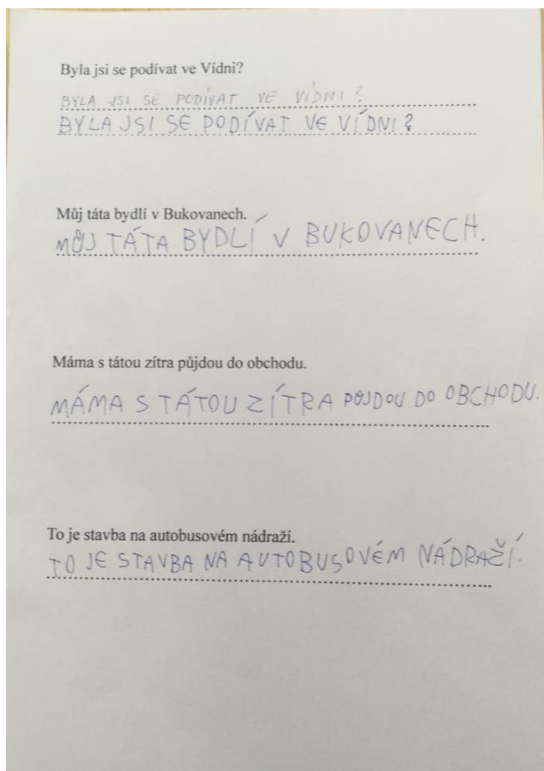 Byla jsi se podívat ve Vídni?
BYLA JSI SE PODÍVAT VE VÍDNI?
BYLA JSI SE PODÍVAT VE VÍDNI?
Můj táta bydlí v Bukovanech.
MŮJ TÁTA BYDLÍ V BUKOVANECH.
Máma s tátou zítra půjdou do obchodu.
MÁMA S TÁTOU ZÍTRA PŮJDOU DO OBCHODU.
To je stavba na autobusovém nádraží.
TO JE STAVBA NA AUTOBUSOVÉM NÁDRAŽÍ.